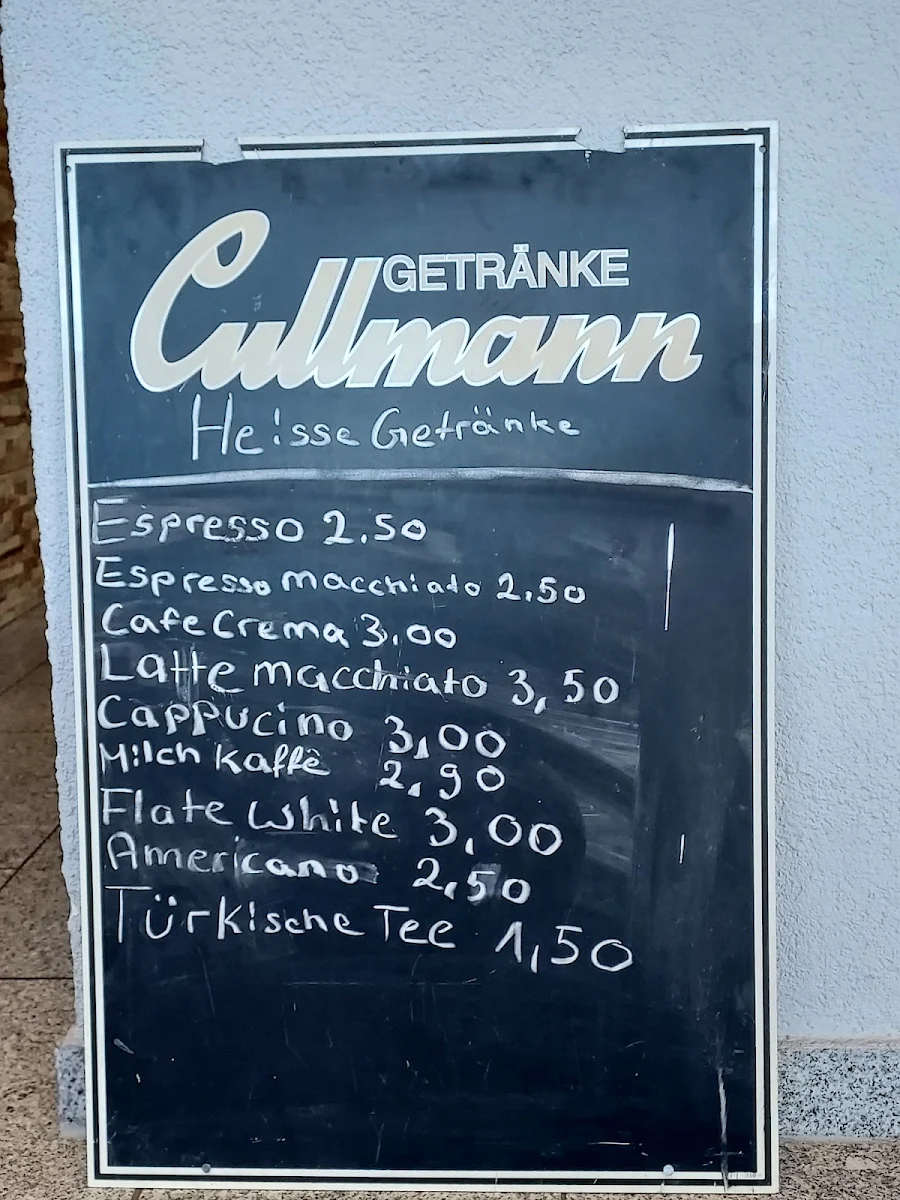 GETRÄNKE
Cullmann
Heisse Getränke
Espresso 2.50
Espresso macchiato 2,50
Cafe Crema 3.00
Latte macchiato 3,50
Cappucino 3,00
Milch Kaffê 2,90
Flate white 3,00
Americano 2,50
Türkische Tee 1,50